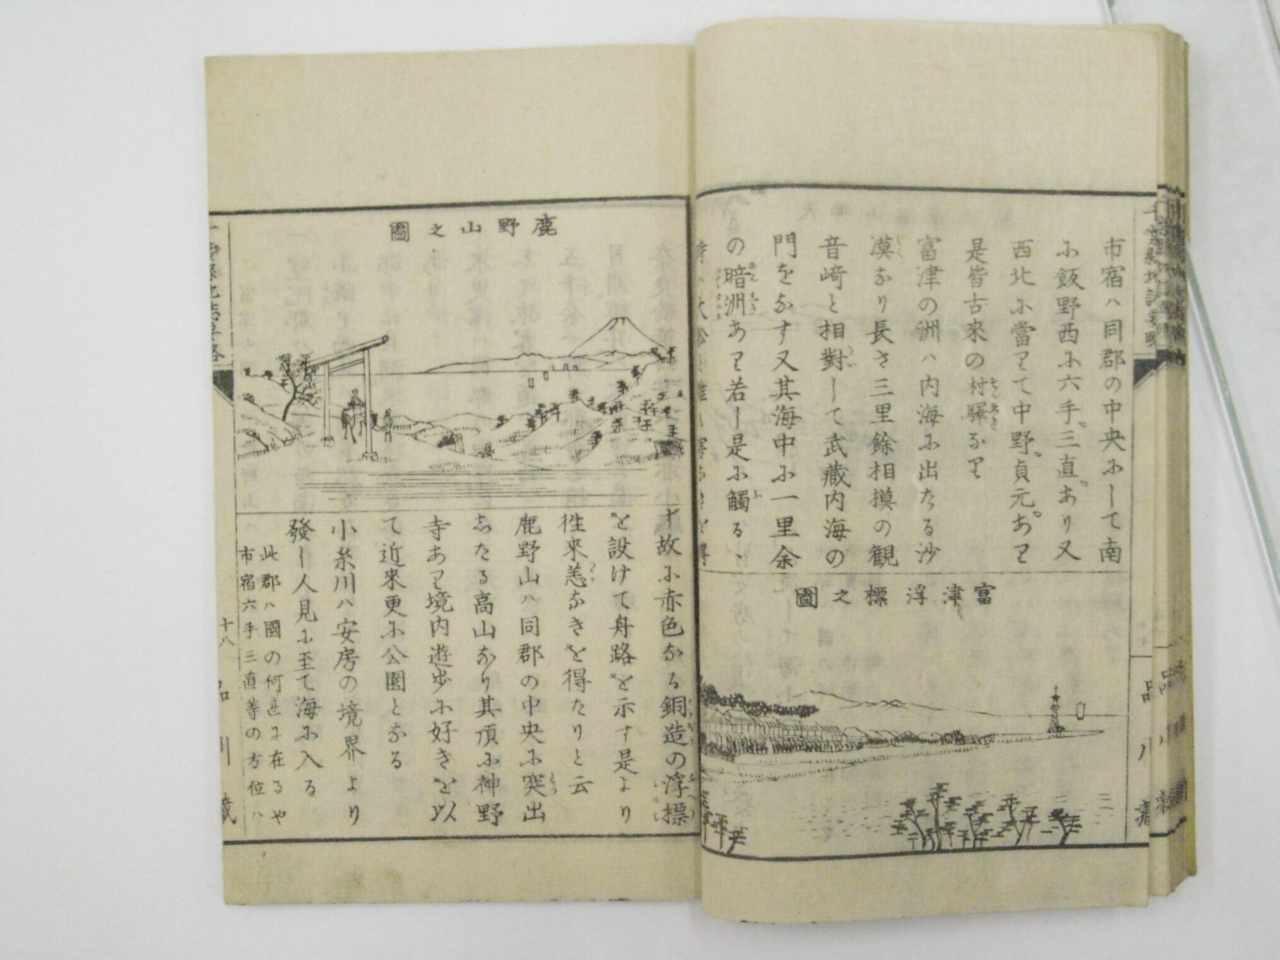 市宿ハ同郡の中央ふして南
ふ飯野西ふ六手三直あり又
西北ふ當りて中野貞元あり
是皆古来の村驛なり
富津の洲ハ内海ふ出たる沙
漠なり長さ三里餘相摸の観
音崎と相對して武蔵内海の
門をなす又其海中ふ一里余
の暗洲あり若し是ふ觸るゝ
富津浮標之圖
す故ふ赤色なる銅造の浮標
を設けて舟路を示す是より
徃来恙なきを得たりと云
鹿野山ハ同郡の中央ふ突出
したる高山なり其頂ふ神野
寺あり境内遊歩ふ好きを以
て近来更ふ公園となる
小糸川ハ安房の境界より
發し人見ふ至て海ふ入る
此郡ハ國の何
市宿六手三直等の方位ハ
鹿野山之圖
十八